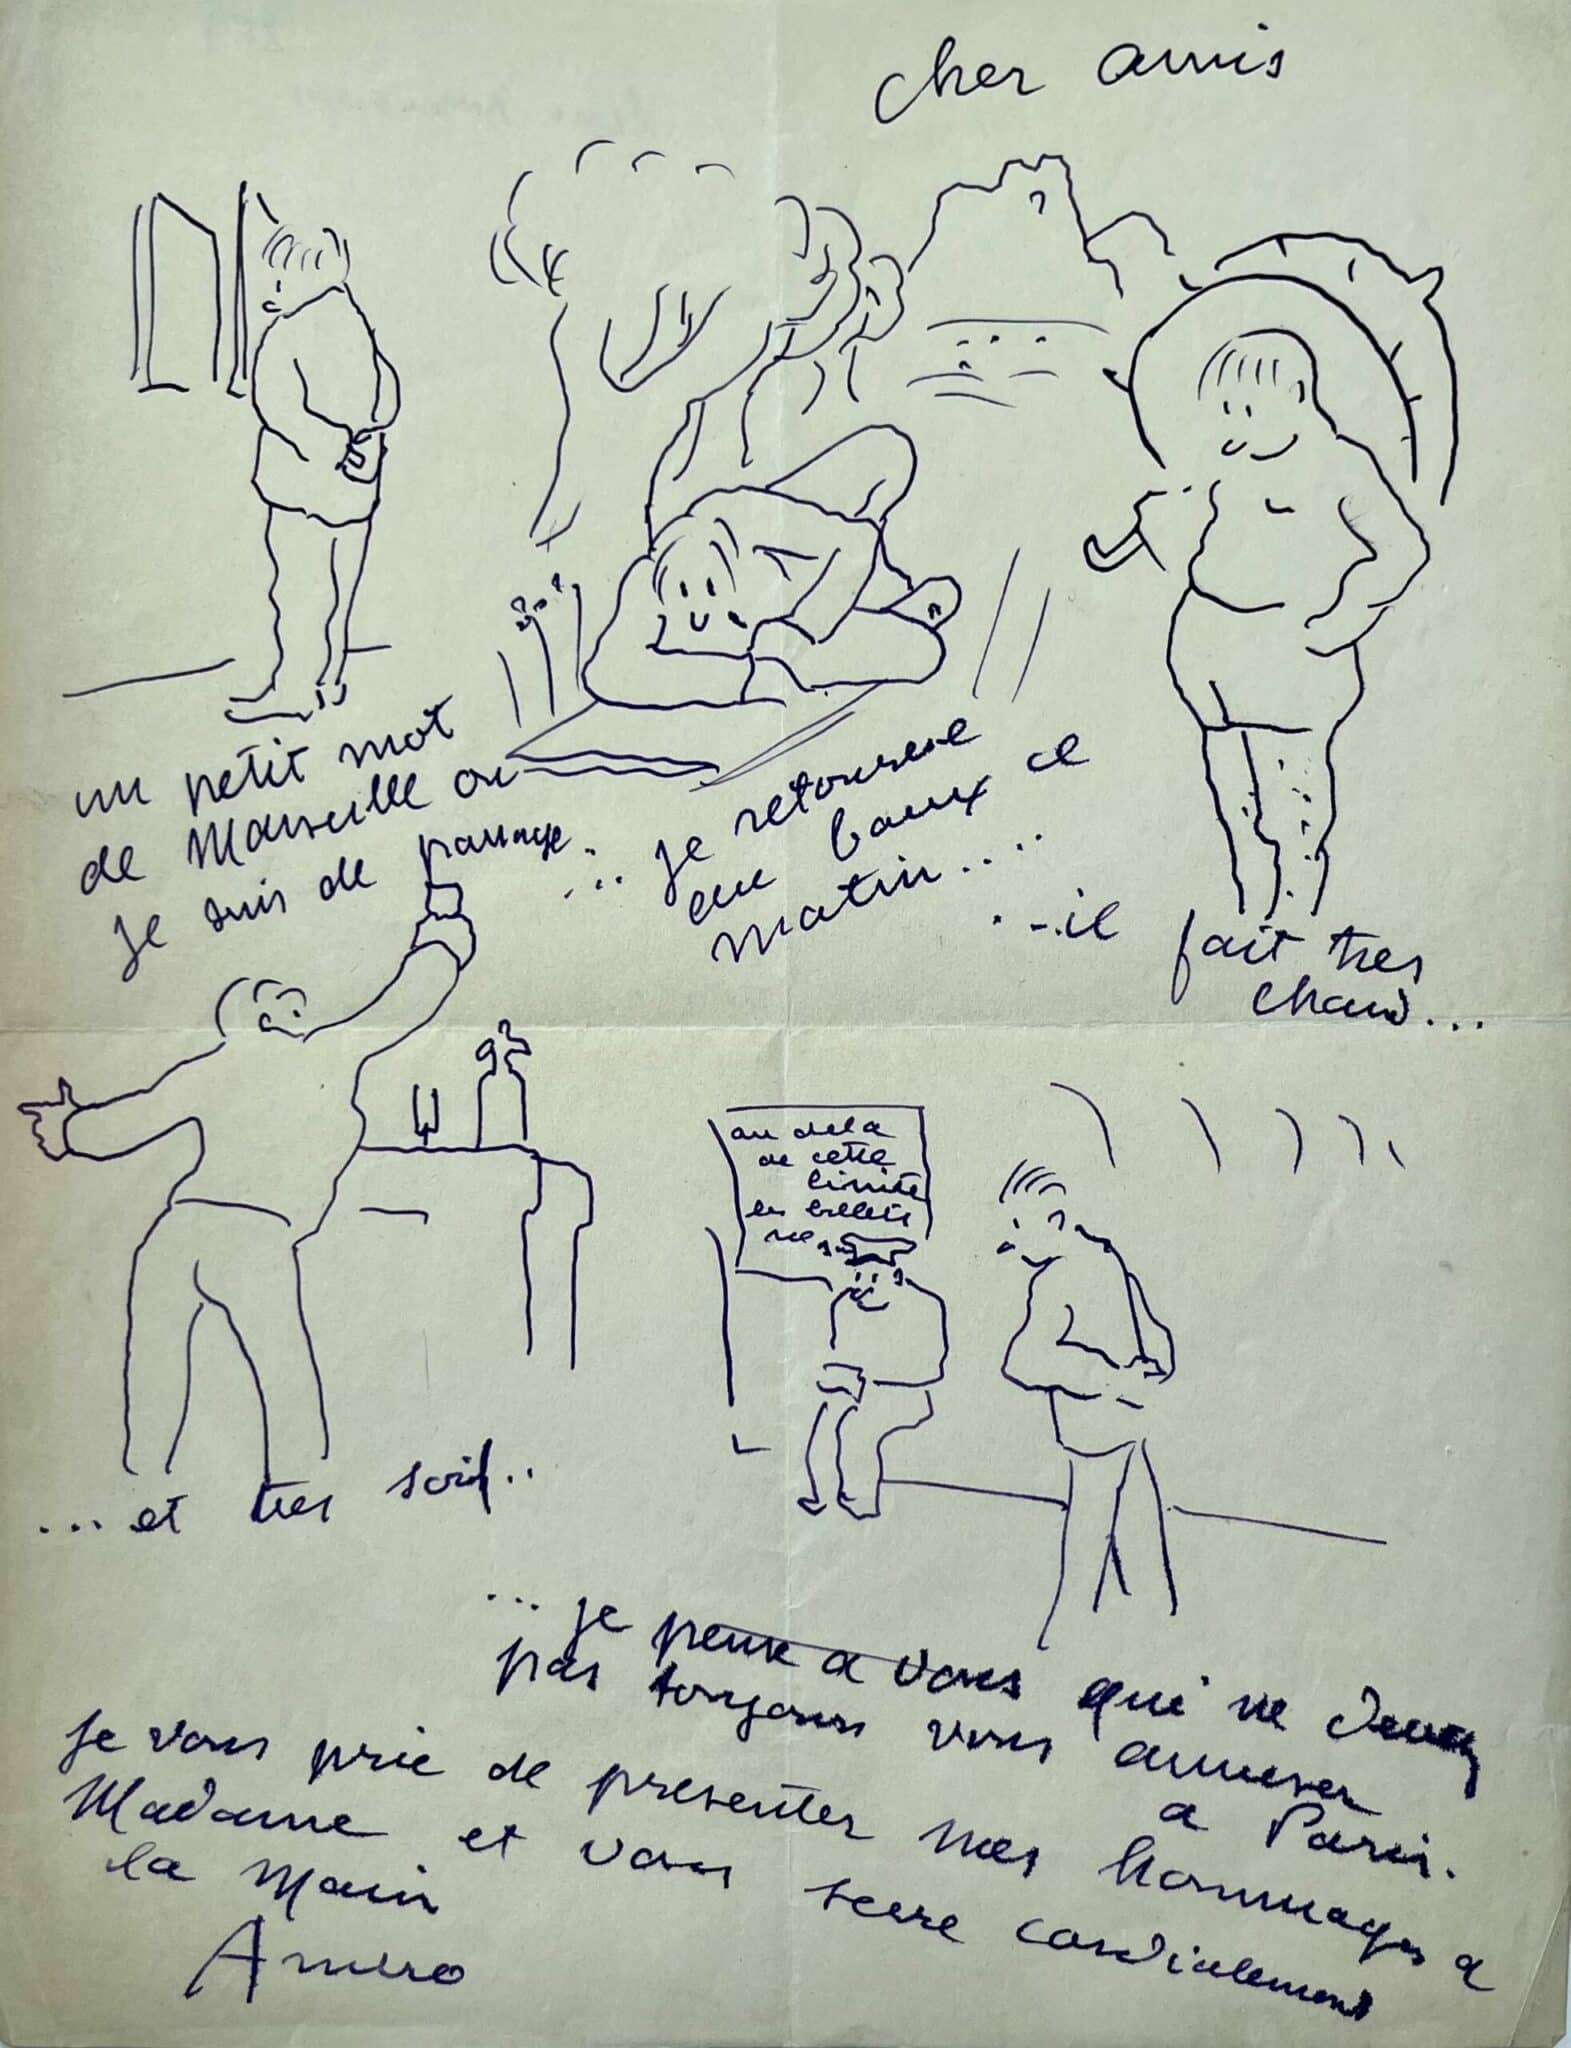 cher amis
un petit mot
de Marseille ou
je suis de passage.
... je retourne
aux baux ce
matin....
...il fait tres
chaud...
...et tres soif..
au dela
de cette
limite
les billets
ne
...je pense a vous qui ne devez
pas toujours vous amuser
a Paris.
je vous prie de presenter mes hommages a
Madame et vous serre cordialement
la Main
Amero